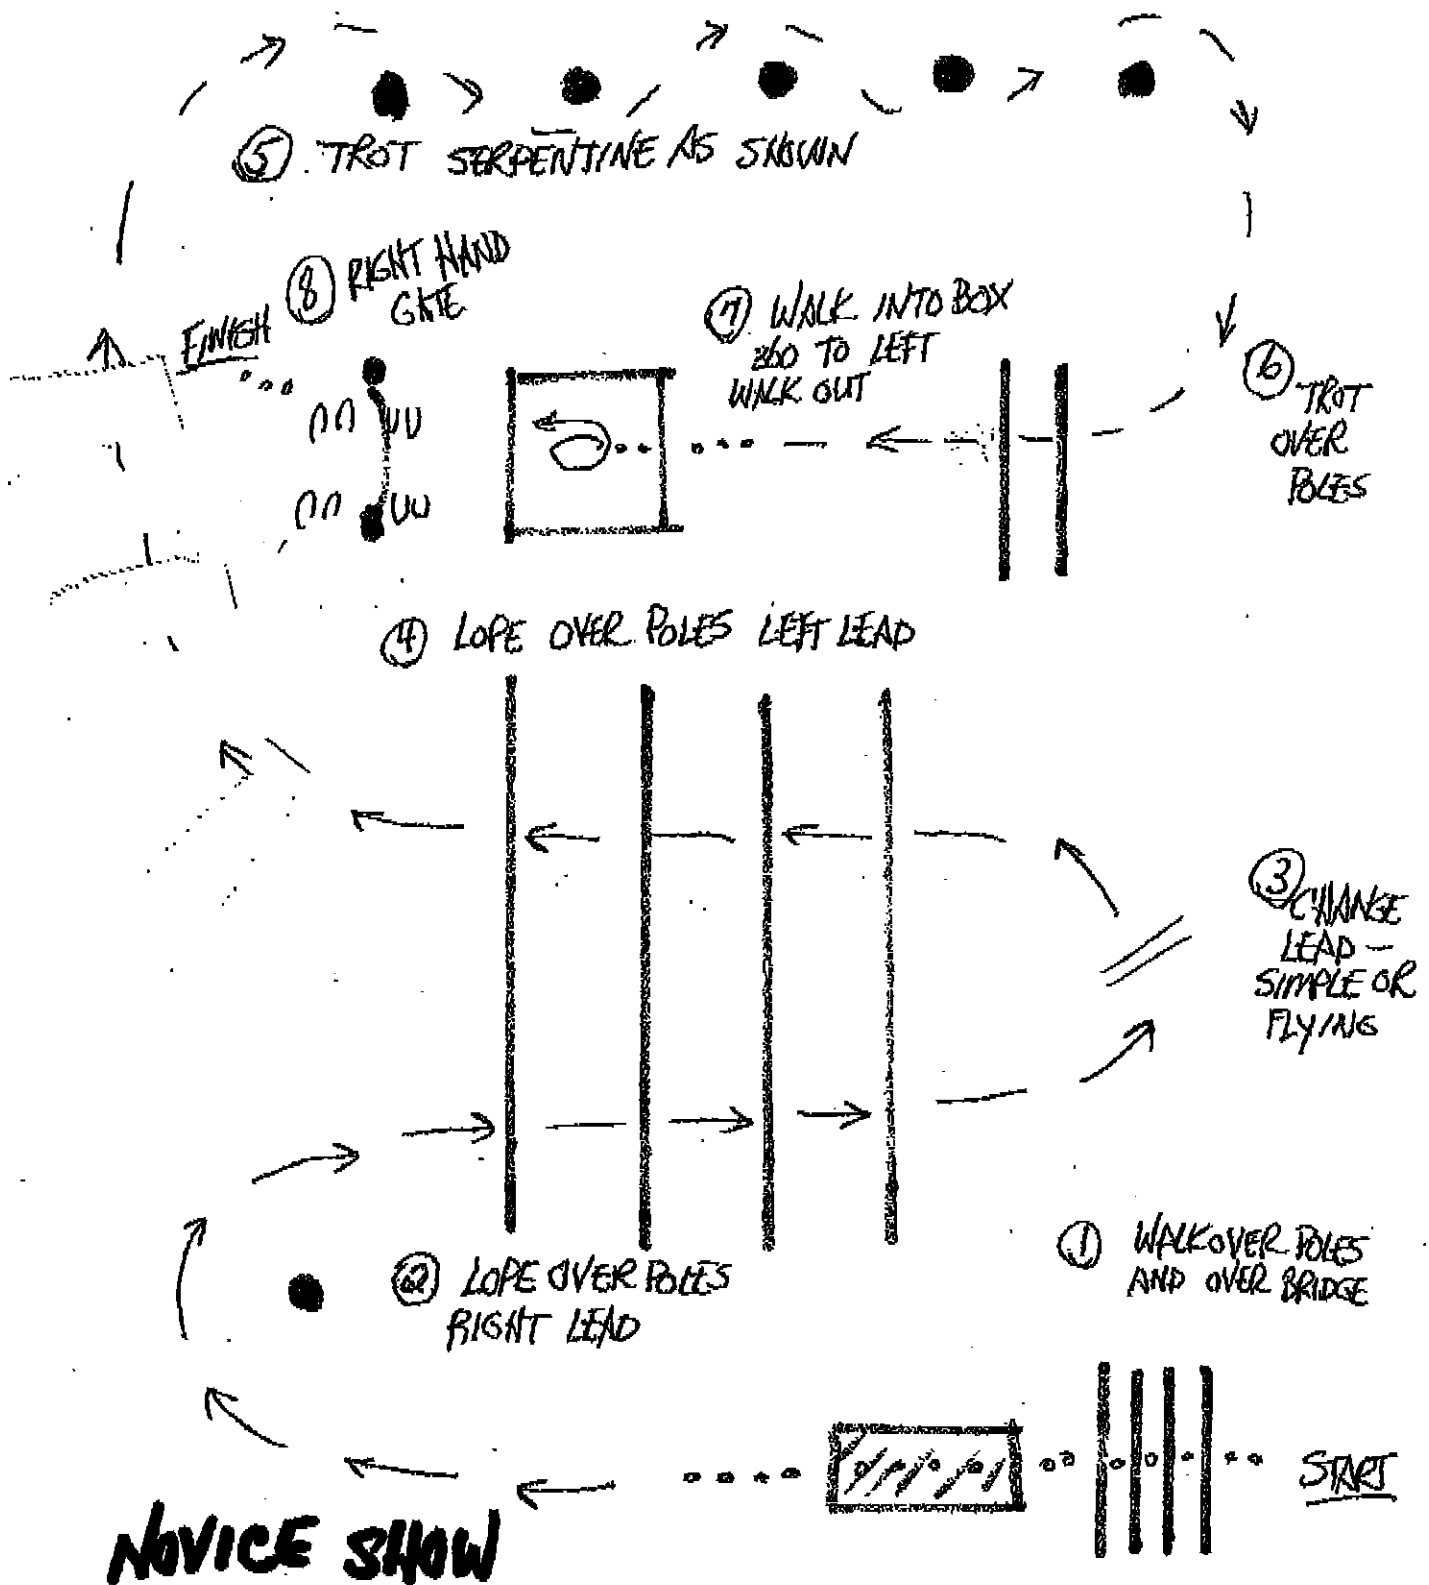 ⑤ TROT SERPENTINE AS SHOWN
⑧ RIGHT HAND
GATE
FINISH
⑦ WALK INTO BOX
360 TO LEFT
WALK OUT
⑥ TROT
OVER
POLES
④ LOPE OVER POLES LEFT LEAD
③ CHANGE
LEAD —
SIMPLE OR
FLYING
② LOPE OVER POLES
RIGHT LEAD
① WALK OVER POLES
AND OVER BRIDGE
START
NOVICE SHOW